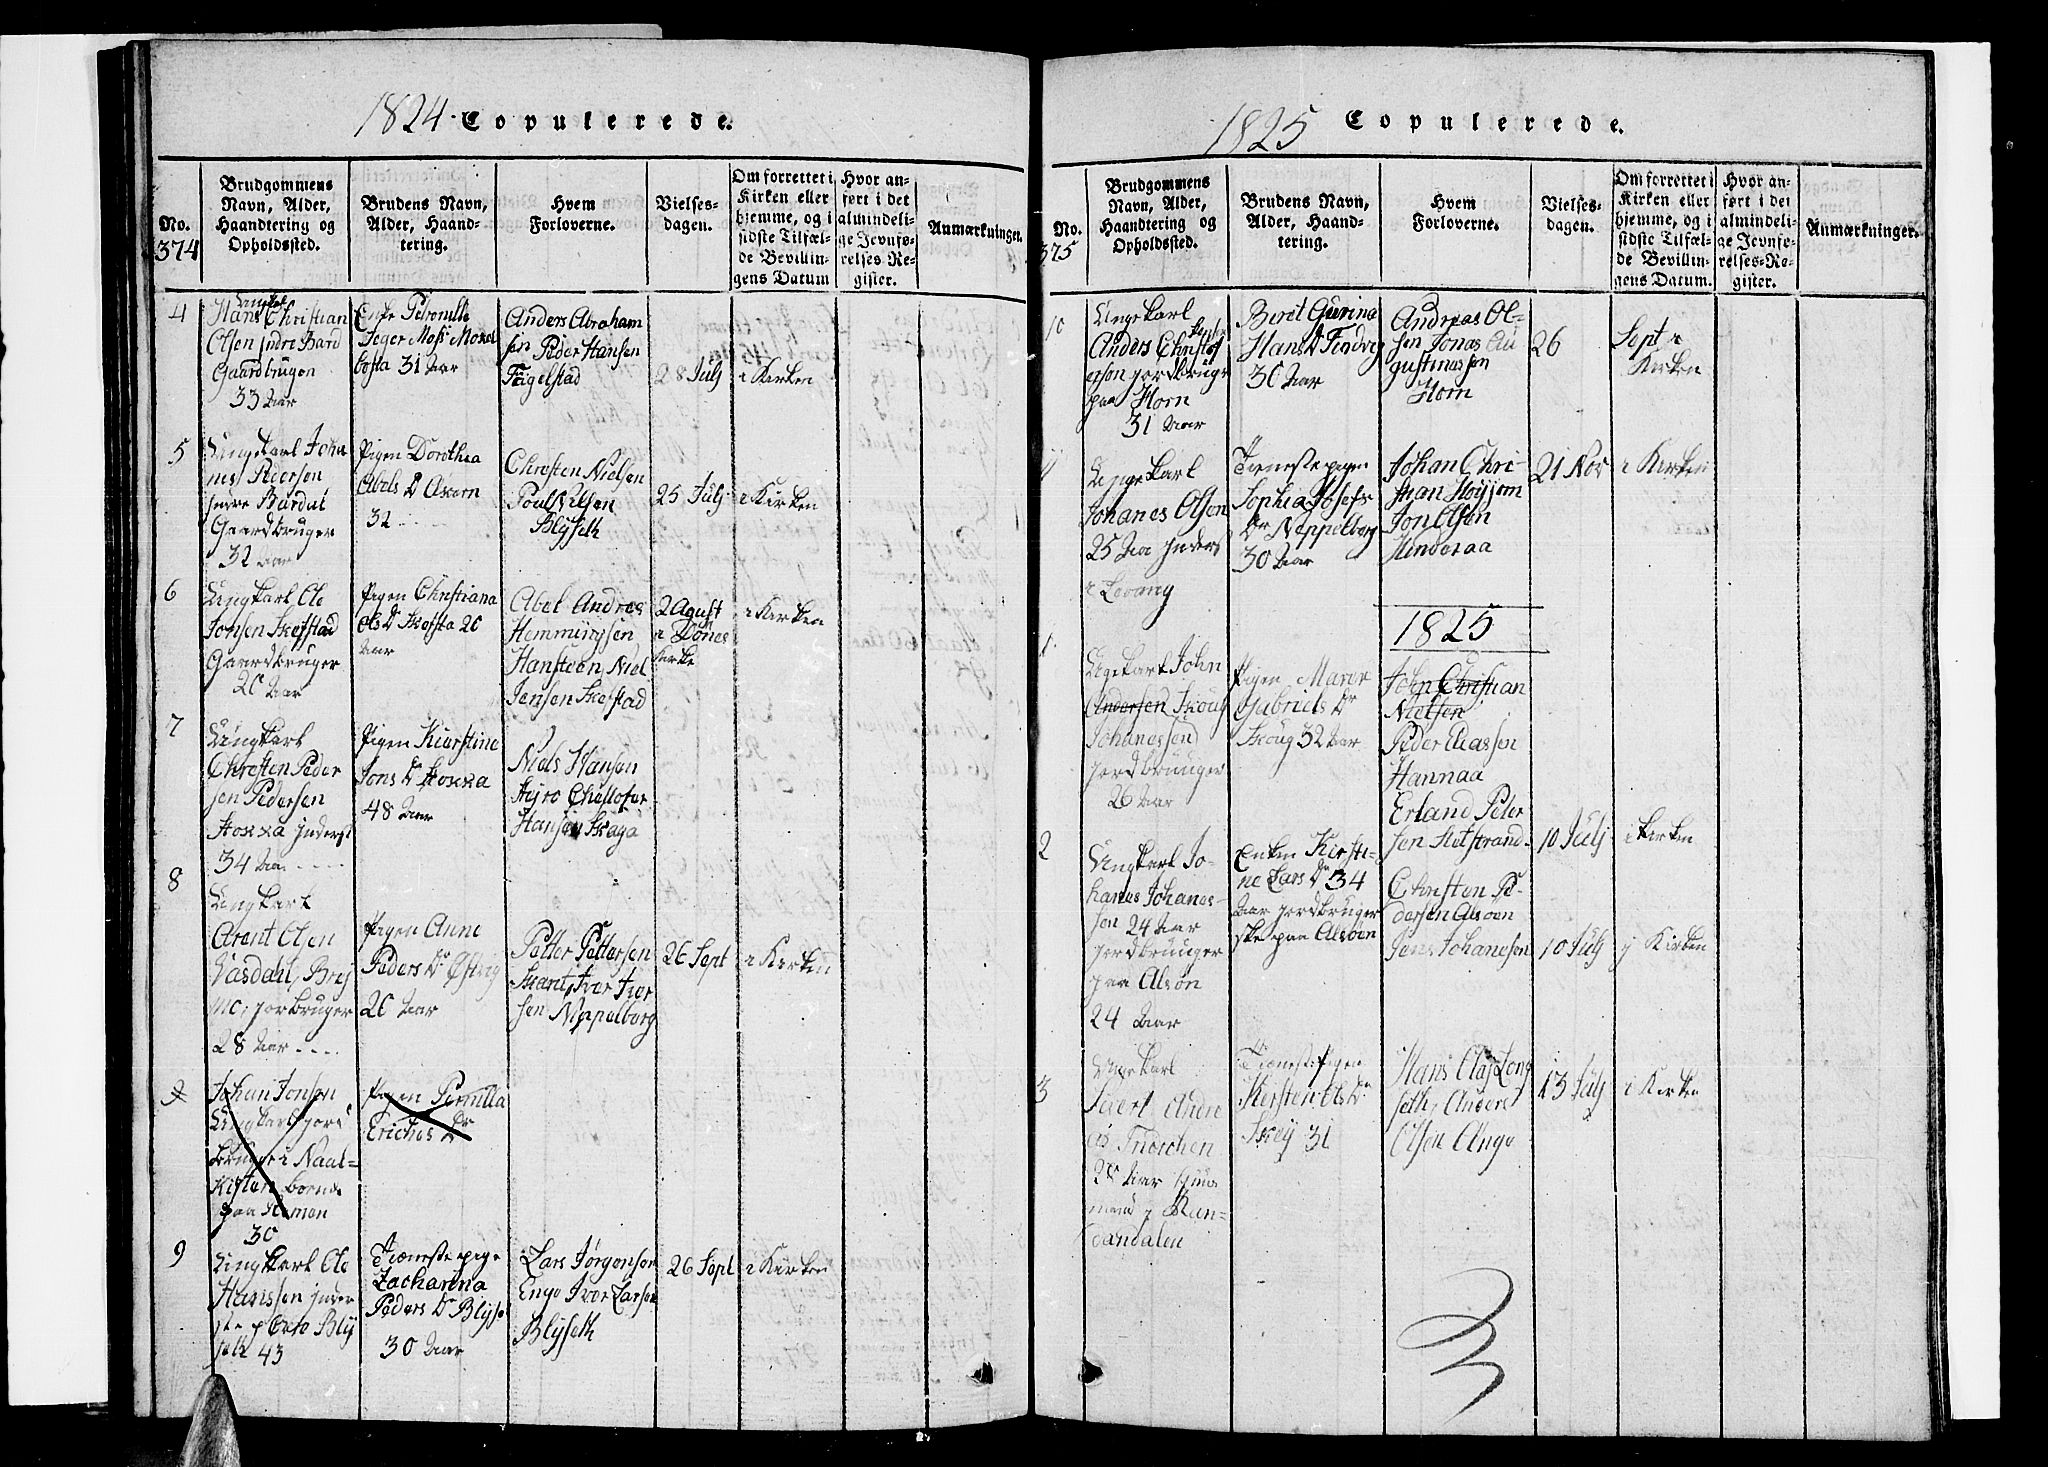 1824. Copulerede.
No.
374
Brudgommens
Navn, Alder,
Haandtering og
Opholdssted.
Brudens Navn,
Alder, Haand-
tering.
Hvem
Forloverne.
Vielses-
dagen.
Om forrettet i
Kirken eller
hjemme, og i
sidste Tilfæl-
de Bevillin-
gens Datum
Hvor an-
ført i det
almindeli-
ge Jevnfø-
relses-Re-
gister.
Anmærkninger.
4
Ungkarl
Hans Christian
Olsen indre Bard
Gaardbruger
33 Aar
Enke Petronille
31 Aar
Anders Abraham
sen Peder Hansen
Tegelstad
28 Julj
i Kirken
5
Ungkarl Joha
nes Pedersen
indre Bardal
Gaardbruger
32 aar
Pigen Dorothea
Abels Dr
32
Christen Nielsen
Poul Nilsen
Blyseth
25 Julj
i Kirken
6
Ungkarl Ole
Jonsen Skeistad
Gaardbruger
20 Aar
Pigen Christiana
Ols Dr 20
Aar
Abel Andreas
Hemmingsen
Hansteen, Niel
Jensen Skeistad
2 Agust
i Dønes
Kirke
i Kirken
7
Ungkarl
Christen Peder
sen Pedersen
inderst
34 Aar
Pigen Kierstine
Jons Dr
48 Aar
Niels Hansen
Hansen Skaga
8
Ungkarl
Arent Olsen
Vasdahl,
jorbruger
28 Aar
Pigen Anne
Peders Dr
20 Aar
Petter Pettersen
Ivar Iver
sen Neppelborg
26 Sept
i Kirken
Johan Jonsen
Ungkarl jord
bruger i Naal-
30
Pigen Pernilla
Erichs Dr
9
Ungkarl Ole
Hanssen inder
ste
43
Tieneste pige
Zacharina
Peders Dr Blyse
30 Aar
Lars Jørgensen
Engo Ivar Larsen
Blyseth
26 Sept
i Kirken
1825 Copulerede.
No.
375
Brudgommens
Navn, Alder,
Haandtering og
Opholdssted.
Brudens Navn,
Alder, Haand-
tering.
Hvem
Forloverne.
Vielses-
dagen.
Om forrettet i
Kirken eller
hjemme, og i
sidste Tilfæl-
de Bevillin-
gens Datum.
Hvor an-
ført i det
almindeli-
ge Jevnfø-
relses-Re-
gister.
Anmærkninger.
10
Ungekarl
Anders Christof
ersen jordbruge
paa Horn
31 Aar
Berit Gurina
Hans Dr Tindvig
30 Aar
Andreas Ol-
sen Jonas Au
gustinussen
Horn
26
Sept i
Kirken
11
Ungekarl
Johanes Olsen
25 Aa inders
i Levang
Tieneste pigen
Sophia Josefs
Dr Neppelborg
30 Aar
Johan Chri-
stian Høyjem
Jon Olsen
Hinderaa
21 Nov
i Kirken
1825
1.
Ungekarl John
Andersen Skoug
Johanessen
jordbruuger
26 Aar
Pigen Maren
Gabriels Dr
Skoug 32 Aar
John Christian
Nielsen
Peder Eliassen
Hannaa
Erland Peter
sen
10 Julj
i Kirken
2
Ungkarl Jo-
hanes Johanes-
sen 24 Aar
jordbruuger
paa Alsøn
24 Aar
Enken Kirsti-
ne Lars Dr 34
Aar jordbruger
ske paa Alsøen
Christen Pe-
dersen Alsøen
Jens Johanesen
10 Julj
j Kirken
3
Ungekarl
Sivert Andre
as
28 Aar huus
mand j Ran-
dandalen
Tieneste Pigen
Kirsten Ols Dr
31
Hans Olas Long
seth, Anders
Olsen Engo
13 Julj
i Kirken